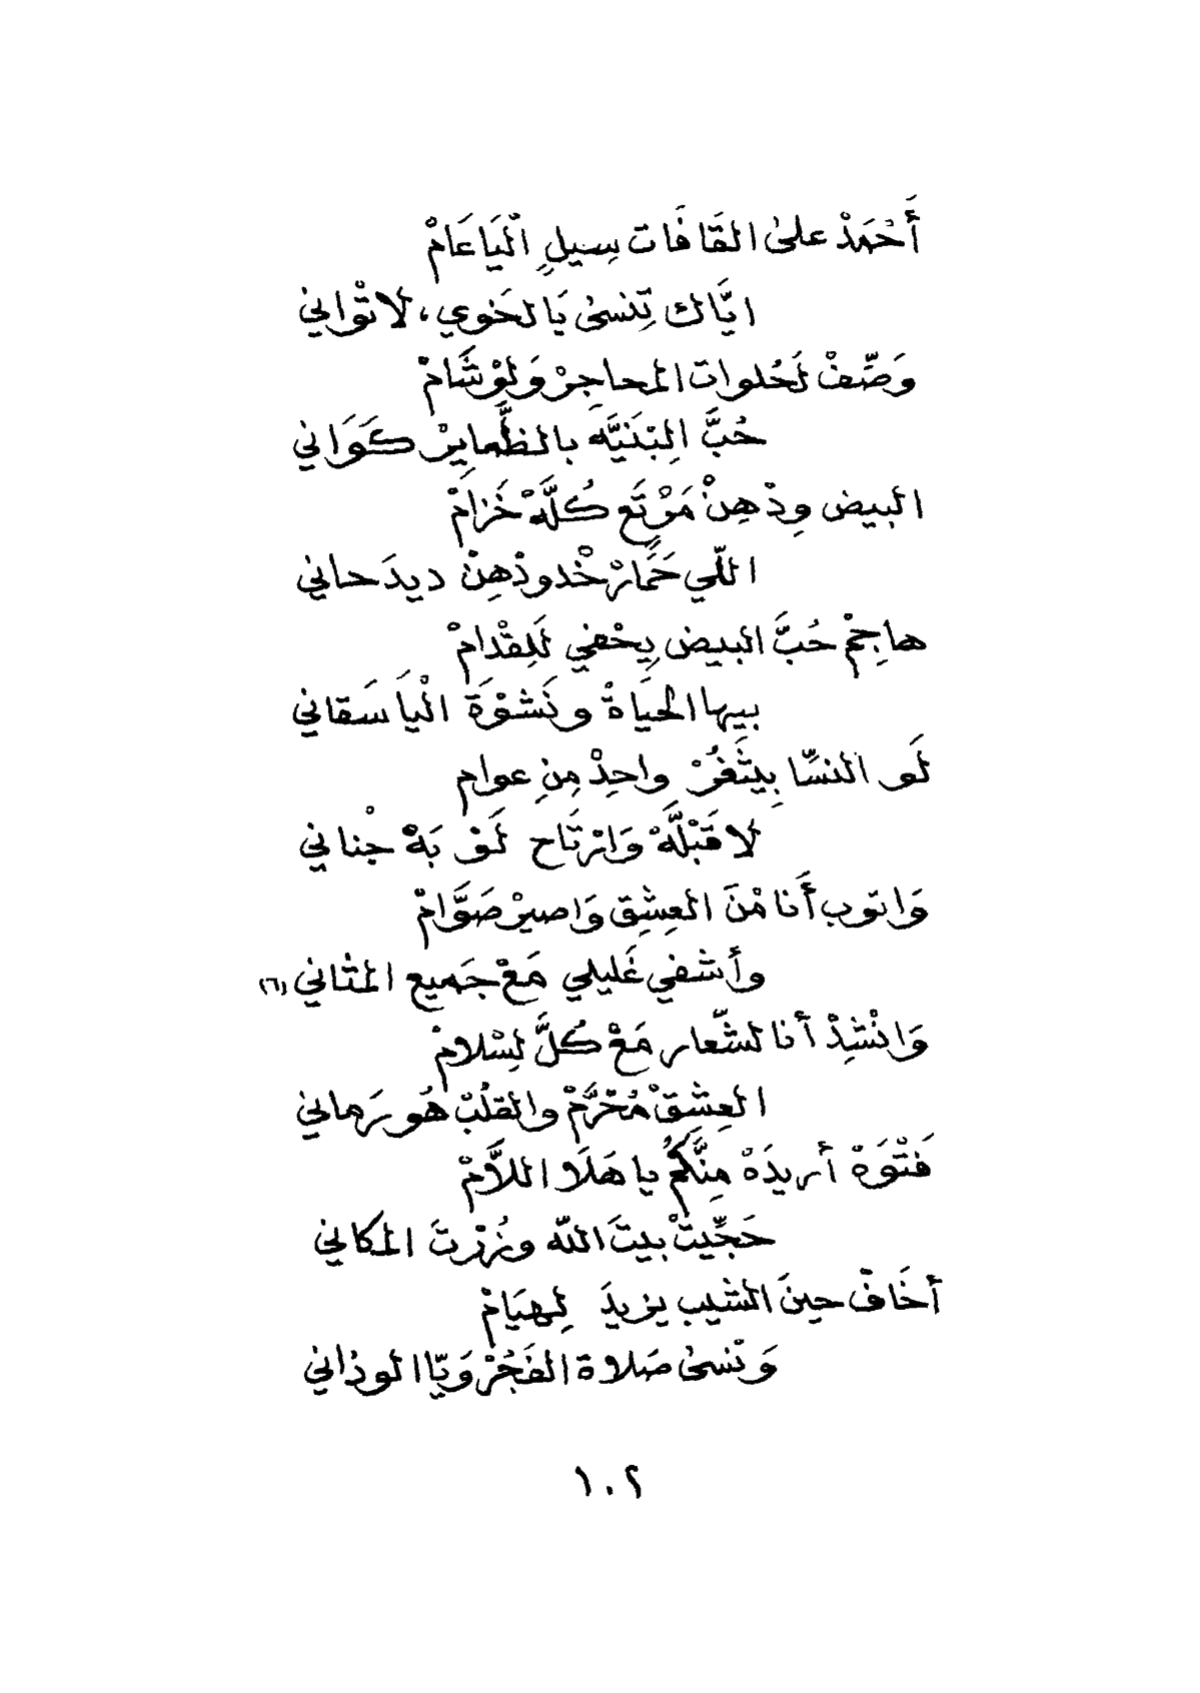 أَحْمَدْ على القَافَات سِيلِ الْيَا عَامْ
ايَّاك تِنسى يَا لخَوي، لا تْواني
وَصِّفْ لَحُلوات المحاجِرْ وَلَوْشَامْ
حُبَّ الِبْنَيَّه بالظَّمايِرْ كَوَاني
البيض وِدْهِنْ مَوْتَع كُلَّهْ خَزامْ
اللّي حَمَّارْ خْدودْهِنْ ديدَحاني
هاجِمْ حُبَّ البيض يِحْفي لَلِقْدامْ
بيها الحيَاةْ ونَشوْةَ الْيَا سَقاني
لَو النسّا بِيثَغُرْ واحِدْ مِنِ عوام
لا قَبْلَّهْ وَاتْرتَاح لَوْ بَهْ جْناني
وَاتوب أَنا مْنَ العِشِق وَاصيرْ صَوَّامْ
وأَشفي غَليلي مَعْ جَميع المثاني (٦)
وَانْشِدْ أنا لشّعار مَعْ كُلَّ لِسْلامْ
العِشِقْ مُحْرَّمْ والقلُبْ هُو رَماني
فَتْوَهْ أريدَهْ مِنَّكُمْ يا هَلَا اللاَّمْ
حَجِّيتْ بيتَ اللّه وزُرْتَ المكاني
أخَافْ حينَ الشيب يزيدَ لِهيَامْ
وَتْنسى صَلاة الفَجُرْ وَيّا الوذاني
١٠٢